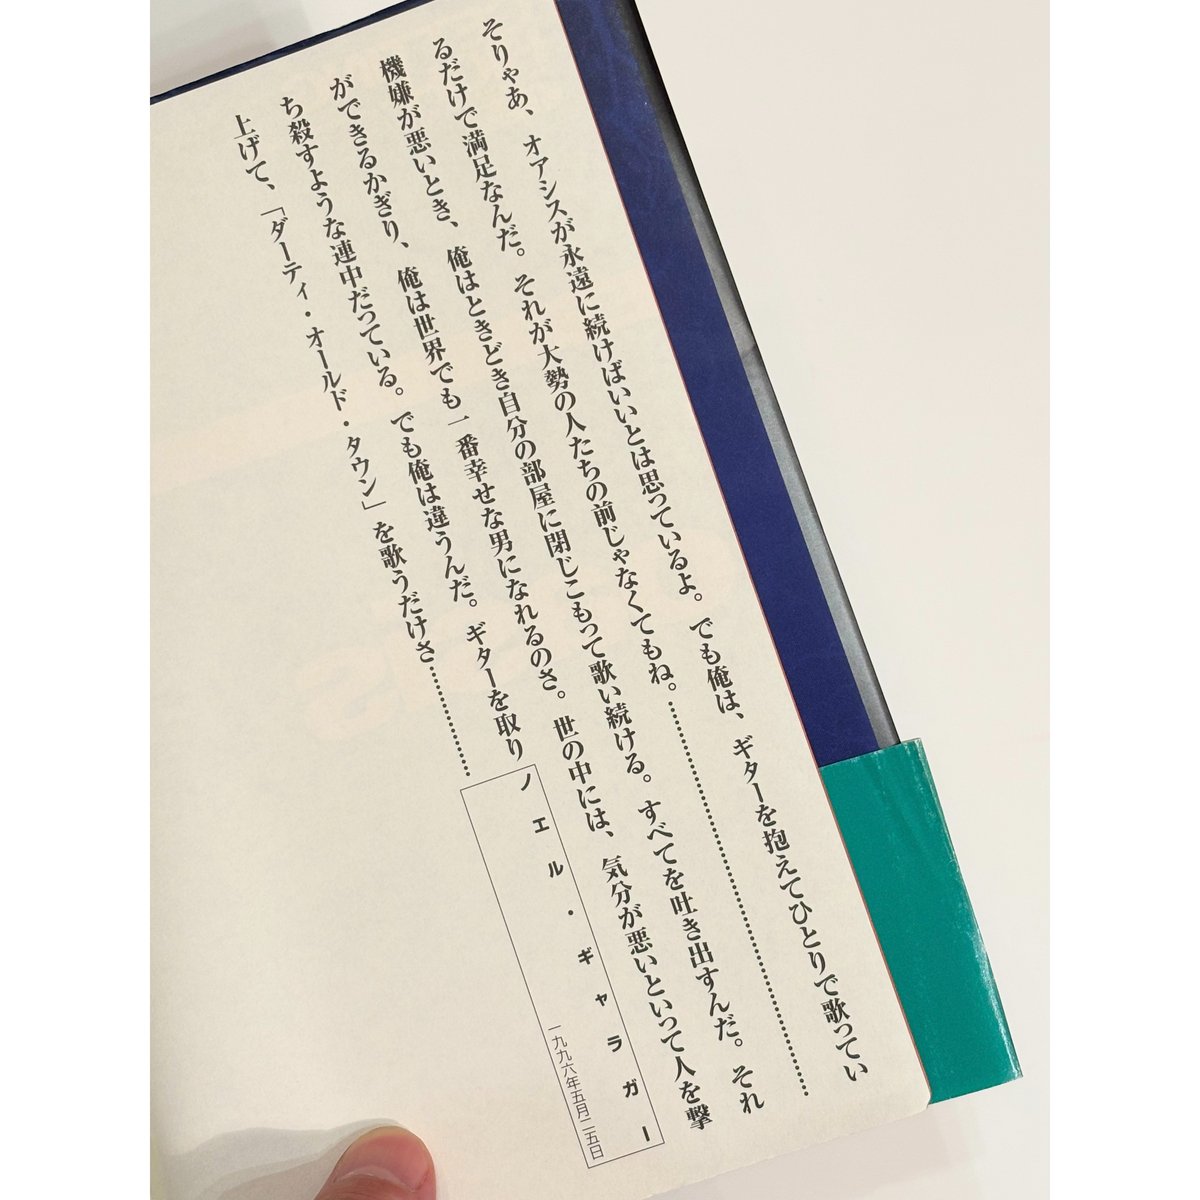 そりゃあ、オアシスが永遠に続けばいいとは思っているよ。でも俺は、ギターを抱えてひとりで歌ってい
るだけで満足なんだ。それが大勢の人たちの前じゃなくてもね。…………………………
機嫌が悪いとき、俺はときどき自分の部屋に閉じこもって歌い続ける。すべてを吐き出すんだ。それ
ができるかぎり、俺は世界でも一番幸せな男になれるのさ。世の中には、気分が悪いといって人を撃
ち殺すような連中だっている。でも俺は違うんだ。ギターを取り
上げて、「ダーティ・オールド・タウン」を歌うだけさ…………
ノエル・ギャラガー
一九九六年五月二五日